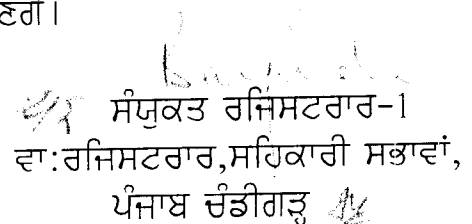 ਣਗੀ।
ਸੰਯੁਕਤ ਰਜਿਸਟਰਾਰ-1
ਵਾ:ਰਜਿਸਟਰਾਰ,ਸਹਿਕਾਰੀ ਸਭਾਵਾਂ,
ਪੰਜਾਬ ਚੰਡੀਗੜ੍ਹ